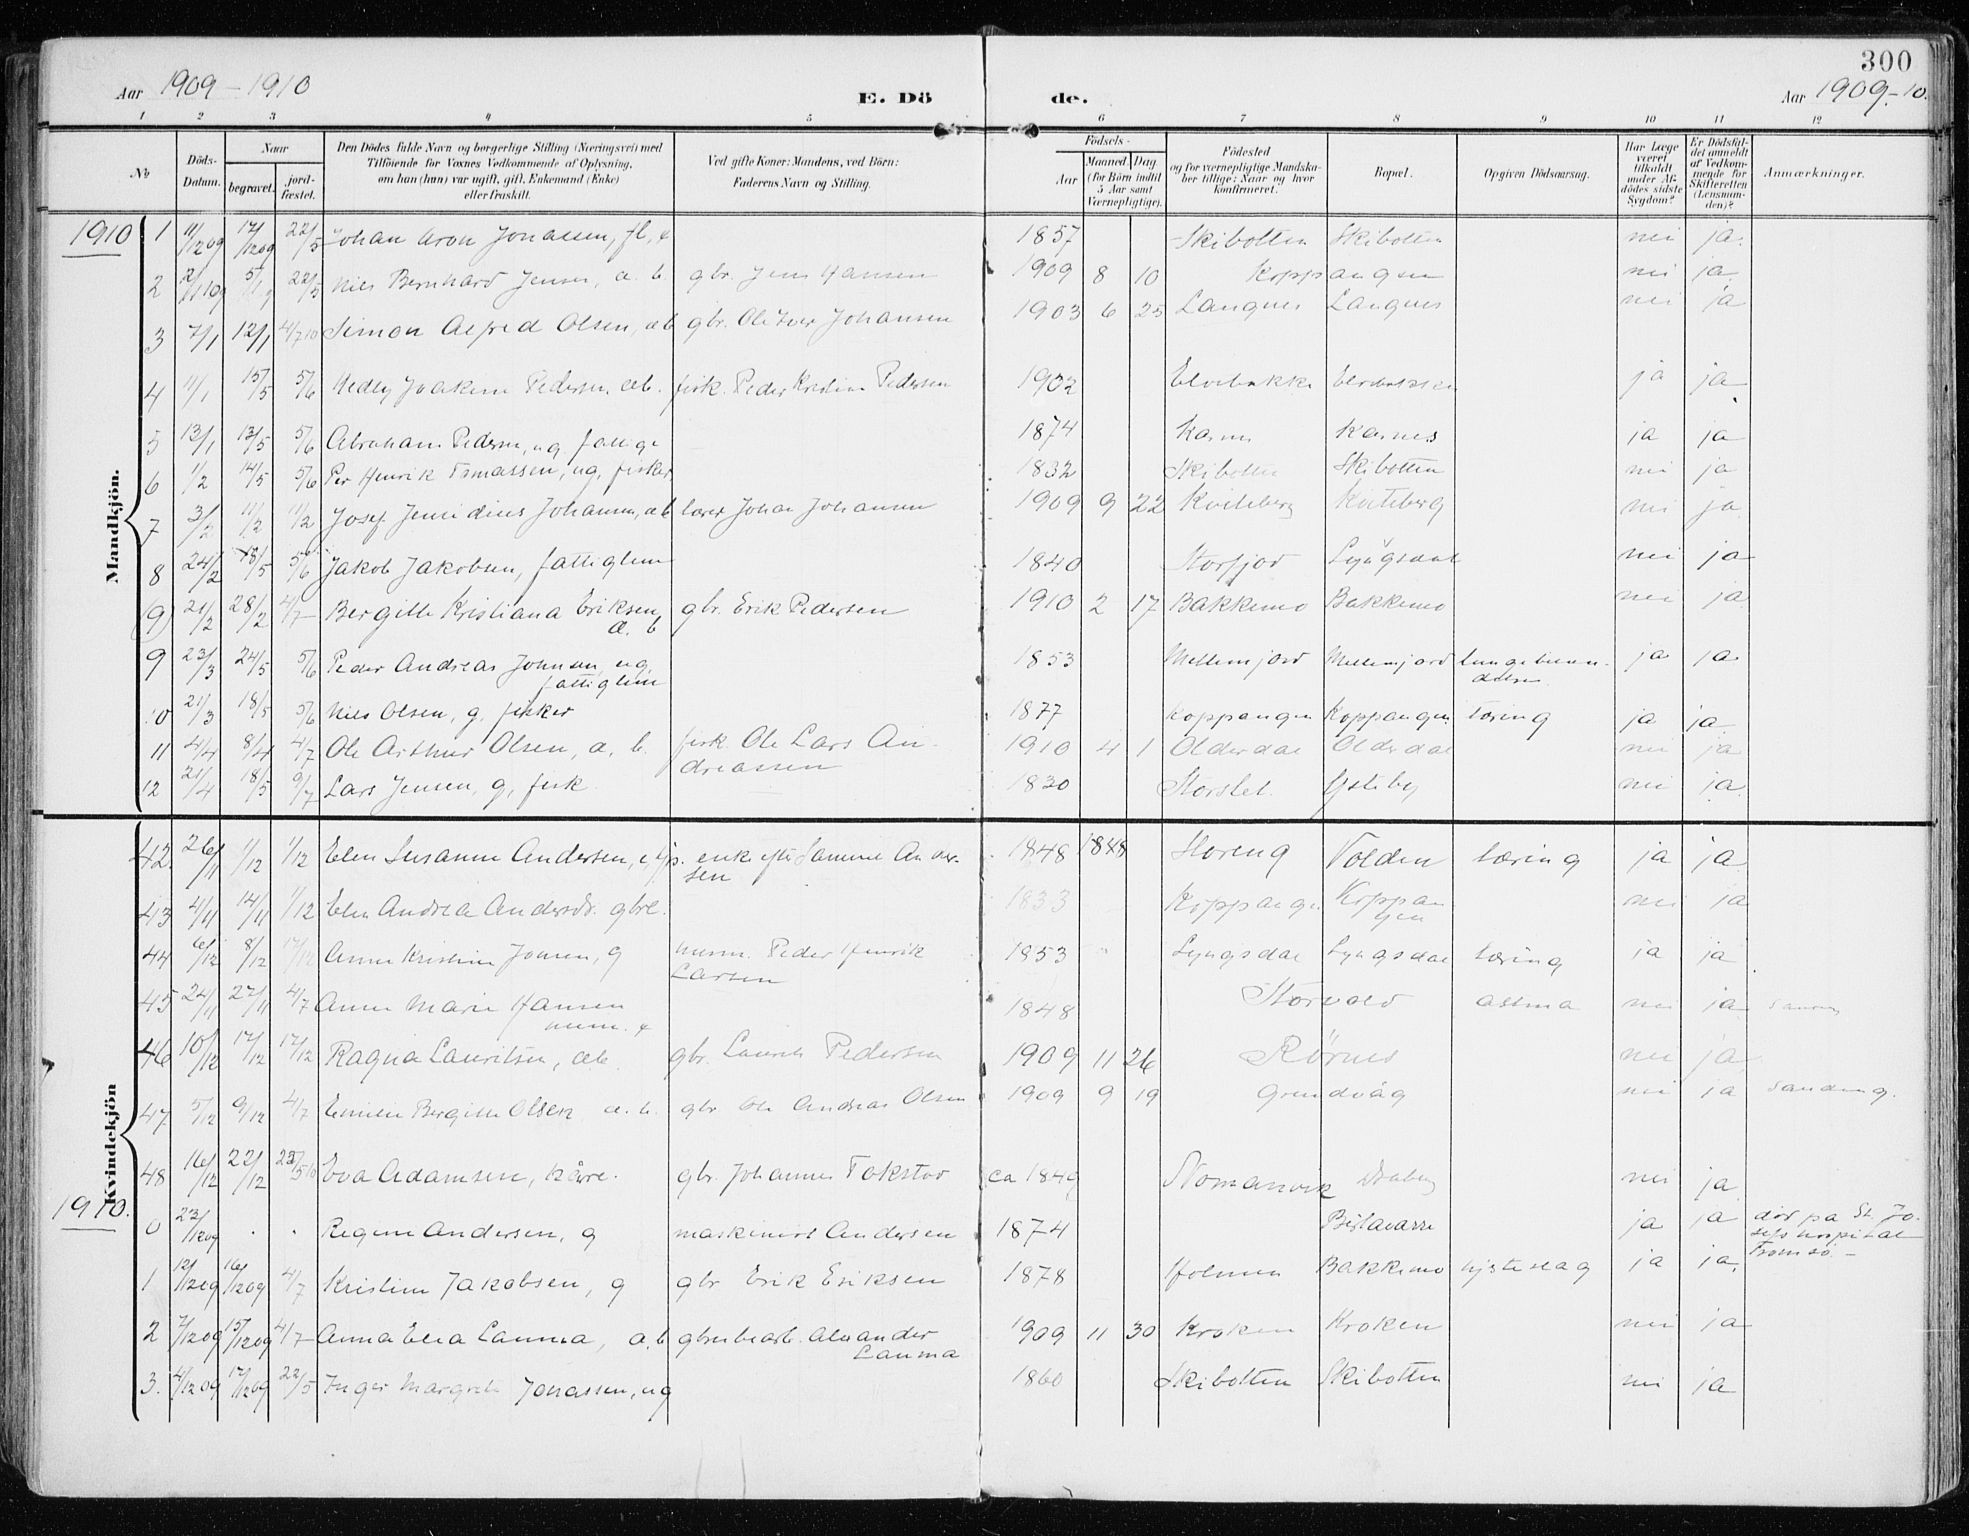 300
Aar 1909-1910 E. Dö de. Aar 1909-10.
1 2 3 4 5 6 7 8 9 10 11 12
No
Döds-Datum.
Naar
begravet.
jord-fæstet.
Den Dödes fulde Navn og borgerlige Stilling (Næringsvei) med
Tilföiende for Voxnes Vedkommende af Oplysning,
om han (hun) var ugift, gift, Enkemand (Enke)
eller fraskilt.
Ved gifte Koner: Mandens, ved Börn:
Faderens Navn og Stilling.
Födsels-
Aar
Maaned Dag
(for Börn indtil
5 Aar samt
Værnepligtige).
Födested
og for værnepligtige Mandska-
ber tillige: Naar og hvor
konfirmeret.
Bopæl.
Opgiven Dödsaarsag.
Har Læge
været
tilkaldt
under Af-
dödes sidste
Sygdom?
Er Dödsfal-
det anmeldt
af Vedkom-
mende for
Skifteretten
(Lensman-
den)?
Anmærkninger.
Mandkjön.
1910 1 11/12 09 17/12 09 22/5 Johan Aron Jonassen, 1857 Skibotten Skibotten nei ja.
2 22/5 Nils Bernhard Jensen, a. b. gbr. Jens Hansen 1909 8 10 Koppangen nei ja.
3 7/1 12/1 4/7 10 Simon Alfred Olsen, æb gbr. Ole Iver Johansen 1903 6 25 Langnes Langnes nei ja
4 11/1 15/5 5/6 Hedley Joakim Pedersen, æb. fisk. Peder Kristian Pedersen 1902 Elvebakke Elvebakken ja ja
5 13/1 13/5 5/6 Abraham Pedersen, ug. fattig 1874 Karnes Karnes ja ja
6 1/2 14/5 5/6 Per Henrik Tomassen, ug. fisker 1832 Skibotten Skibotten nei ja
7 3/2 11/2 11/2 Josef Johansen, æb lærer Johan Johansen 1909 9 22 Kviteberg Kviteberg nei ja
8 24/2 18/5 5/6 Jakob Jakobsen, fattiglem 1840 Storfjord Lyngsdal nei ja
(9) 21/2 28/2 4/7 Bergitte Kristiana Eriksen, gbr. Erik Pedersen 1910 2 17 Bakkemo Bakkemo nei ja
a. b
9 23/3 24/5 5/6 Peder Andreas Johnsen, ug. 1853 Mellemjord Mellemjord lungebetæn- ja ja
fattiglem delse
10 21/3 18/5 5/6 Nils Olsen, g. fisker 1877 Koppangen Koppangen Tæring ja ja
11 4/4 8/4 4/7 Ole Arthur Olsen, a. b. fisk. Ole Lars An- 1910 4 1 Olderdal Olderdal nei ja
dreassen
12 21/4 18/5 9/7 Lars Jensen, g, fisk. 1830 Storslet. Ysteby nei ja.
Kvindekjön
42. 26/11 1/12 1/12 Elen Susanne Andersen, e enke efter Samuel Ander- 1848 1848 Horeng Volden tæring ja ja
sen
43 4/11 14/11 1/12 Elen Andrea Andersdr. gbre. 1833 Koppangen Koppan nei ja
gen
44 6/12 8/12 17/12 Anne Kristine Jonsen, g Peder Henrik 1853 " Lyngsdal Lyngsdal tæring ja ja
Larsen
45 24/11 27/11 4/7 Anne Marie Hansen 1848 Storvold astma nei ja
46 10/12 17/12 17/12 Ragna Lauritsen, æb. gbr. Laurits Pedersen 1909 11 26 Rörnes nei ja
47 5/12 9/12 4/7 Emilie Bergitte Olsen a. b. gbr Ole Andreas Olsen 1909 9 19 Grundvåg nei ja
48 16/12 22/12 Eva Adamsen, kårre. gbr. Johannes Tokstad ca 1849 Nomanvik nei ja
1910. 0 23/12 09 . . Regine Andersen, g maskinist Andersen 1874 ja ja död på St. Jo-
sefs hospital
Tromsö.-
1 12/12 09 16/12 09 4/7 Kristine Jakobsen, g gbr Erik Eriksen 1878 Holmen Bakkemo hjerteslag ja ja.
2 7/12 09 15/12 09 4/7- Anna Elea Lauma, a. b gbrubearb. Alexander 1909 11 30 Kroken Kroken nei ja
Lauma
3. 4/12 09 17/12 09 22/5 Inger Margrete Jonassen, ug 1860 Skibotten Skibotten nei ja